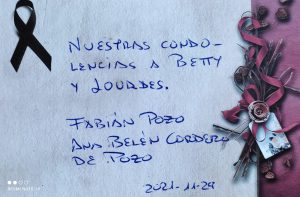 NUESTRAS CONDO-
LENCIAS A BETTY
Y LOURDES.
FABIÁN POZO
ANA BELÉN CORDERO
DE POZO
2021-11-29